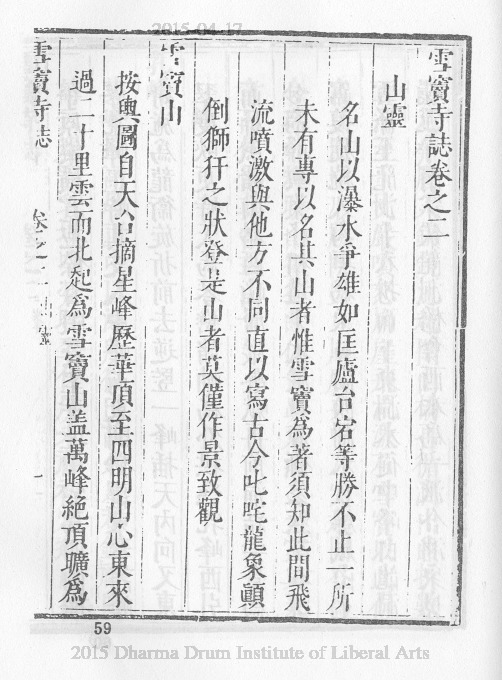 2015-04-17
雪竇寺誌卷之二
山靈
名山以瀑水爭雄如匡廬台宕等勝不止一所
未有專以名其山者惟雪竇為著須知此間飛
流噴激與他方不同直以寫古今叱咤龍象顛
倒獅犴之狀登是山者莫僅作景致觀
雪竇山
按輿圖自天台摘星峰歷華頂至四明山心東來
過二十里雲而北起為雪竇山盖萬峰絕頂曠為
雪竇寺誌
卷之二
靈
一
59
2015 Dharma Drum Institute of Liberal Arts